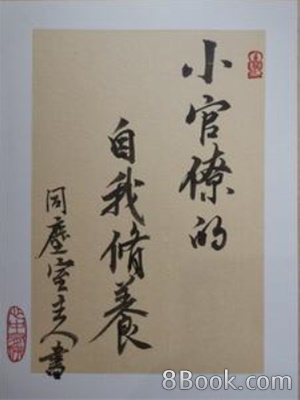 小官僚的
自我脩養
同塵室主人書
8Book.com